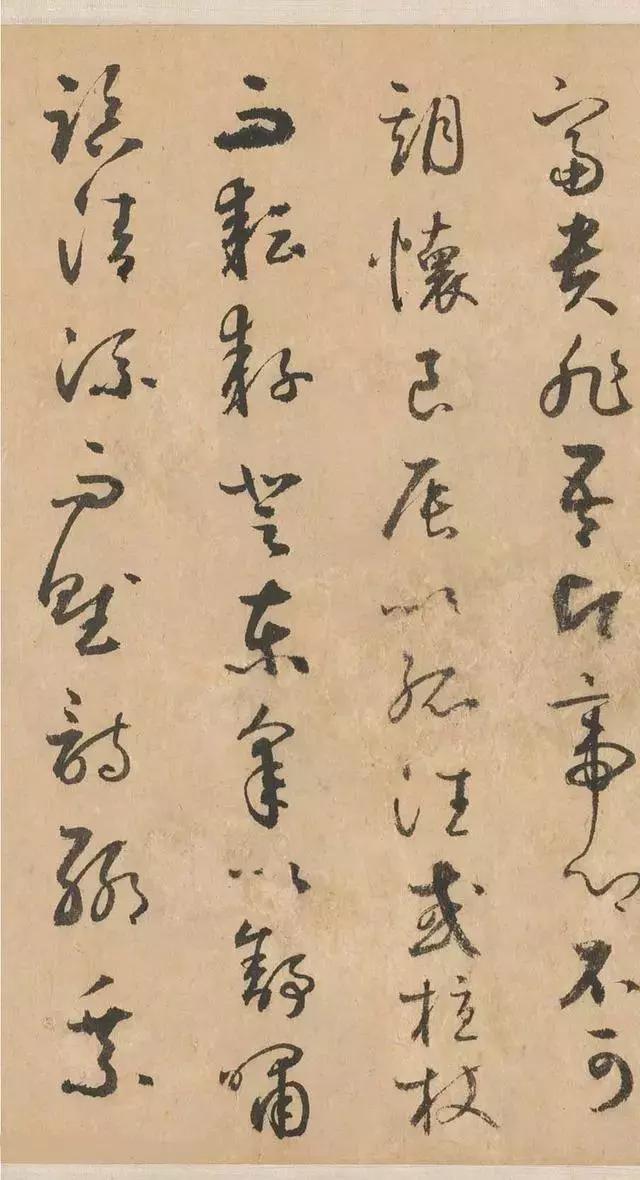 富貴非吾願帝鄉不可
期懷良辰以孤往或植杖
而耘耔登東皋以舒嘯
臨清流而賦詩聊乘